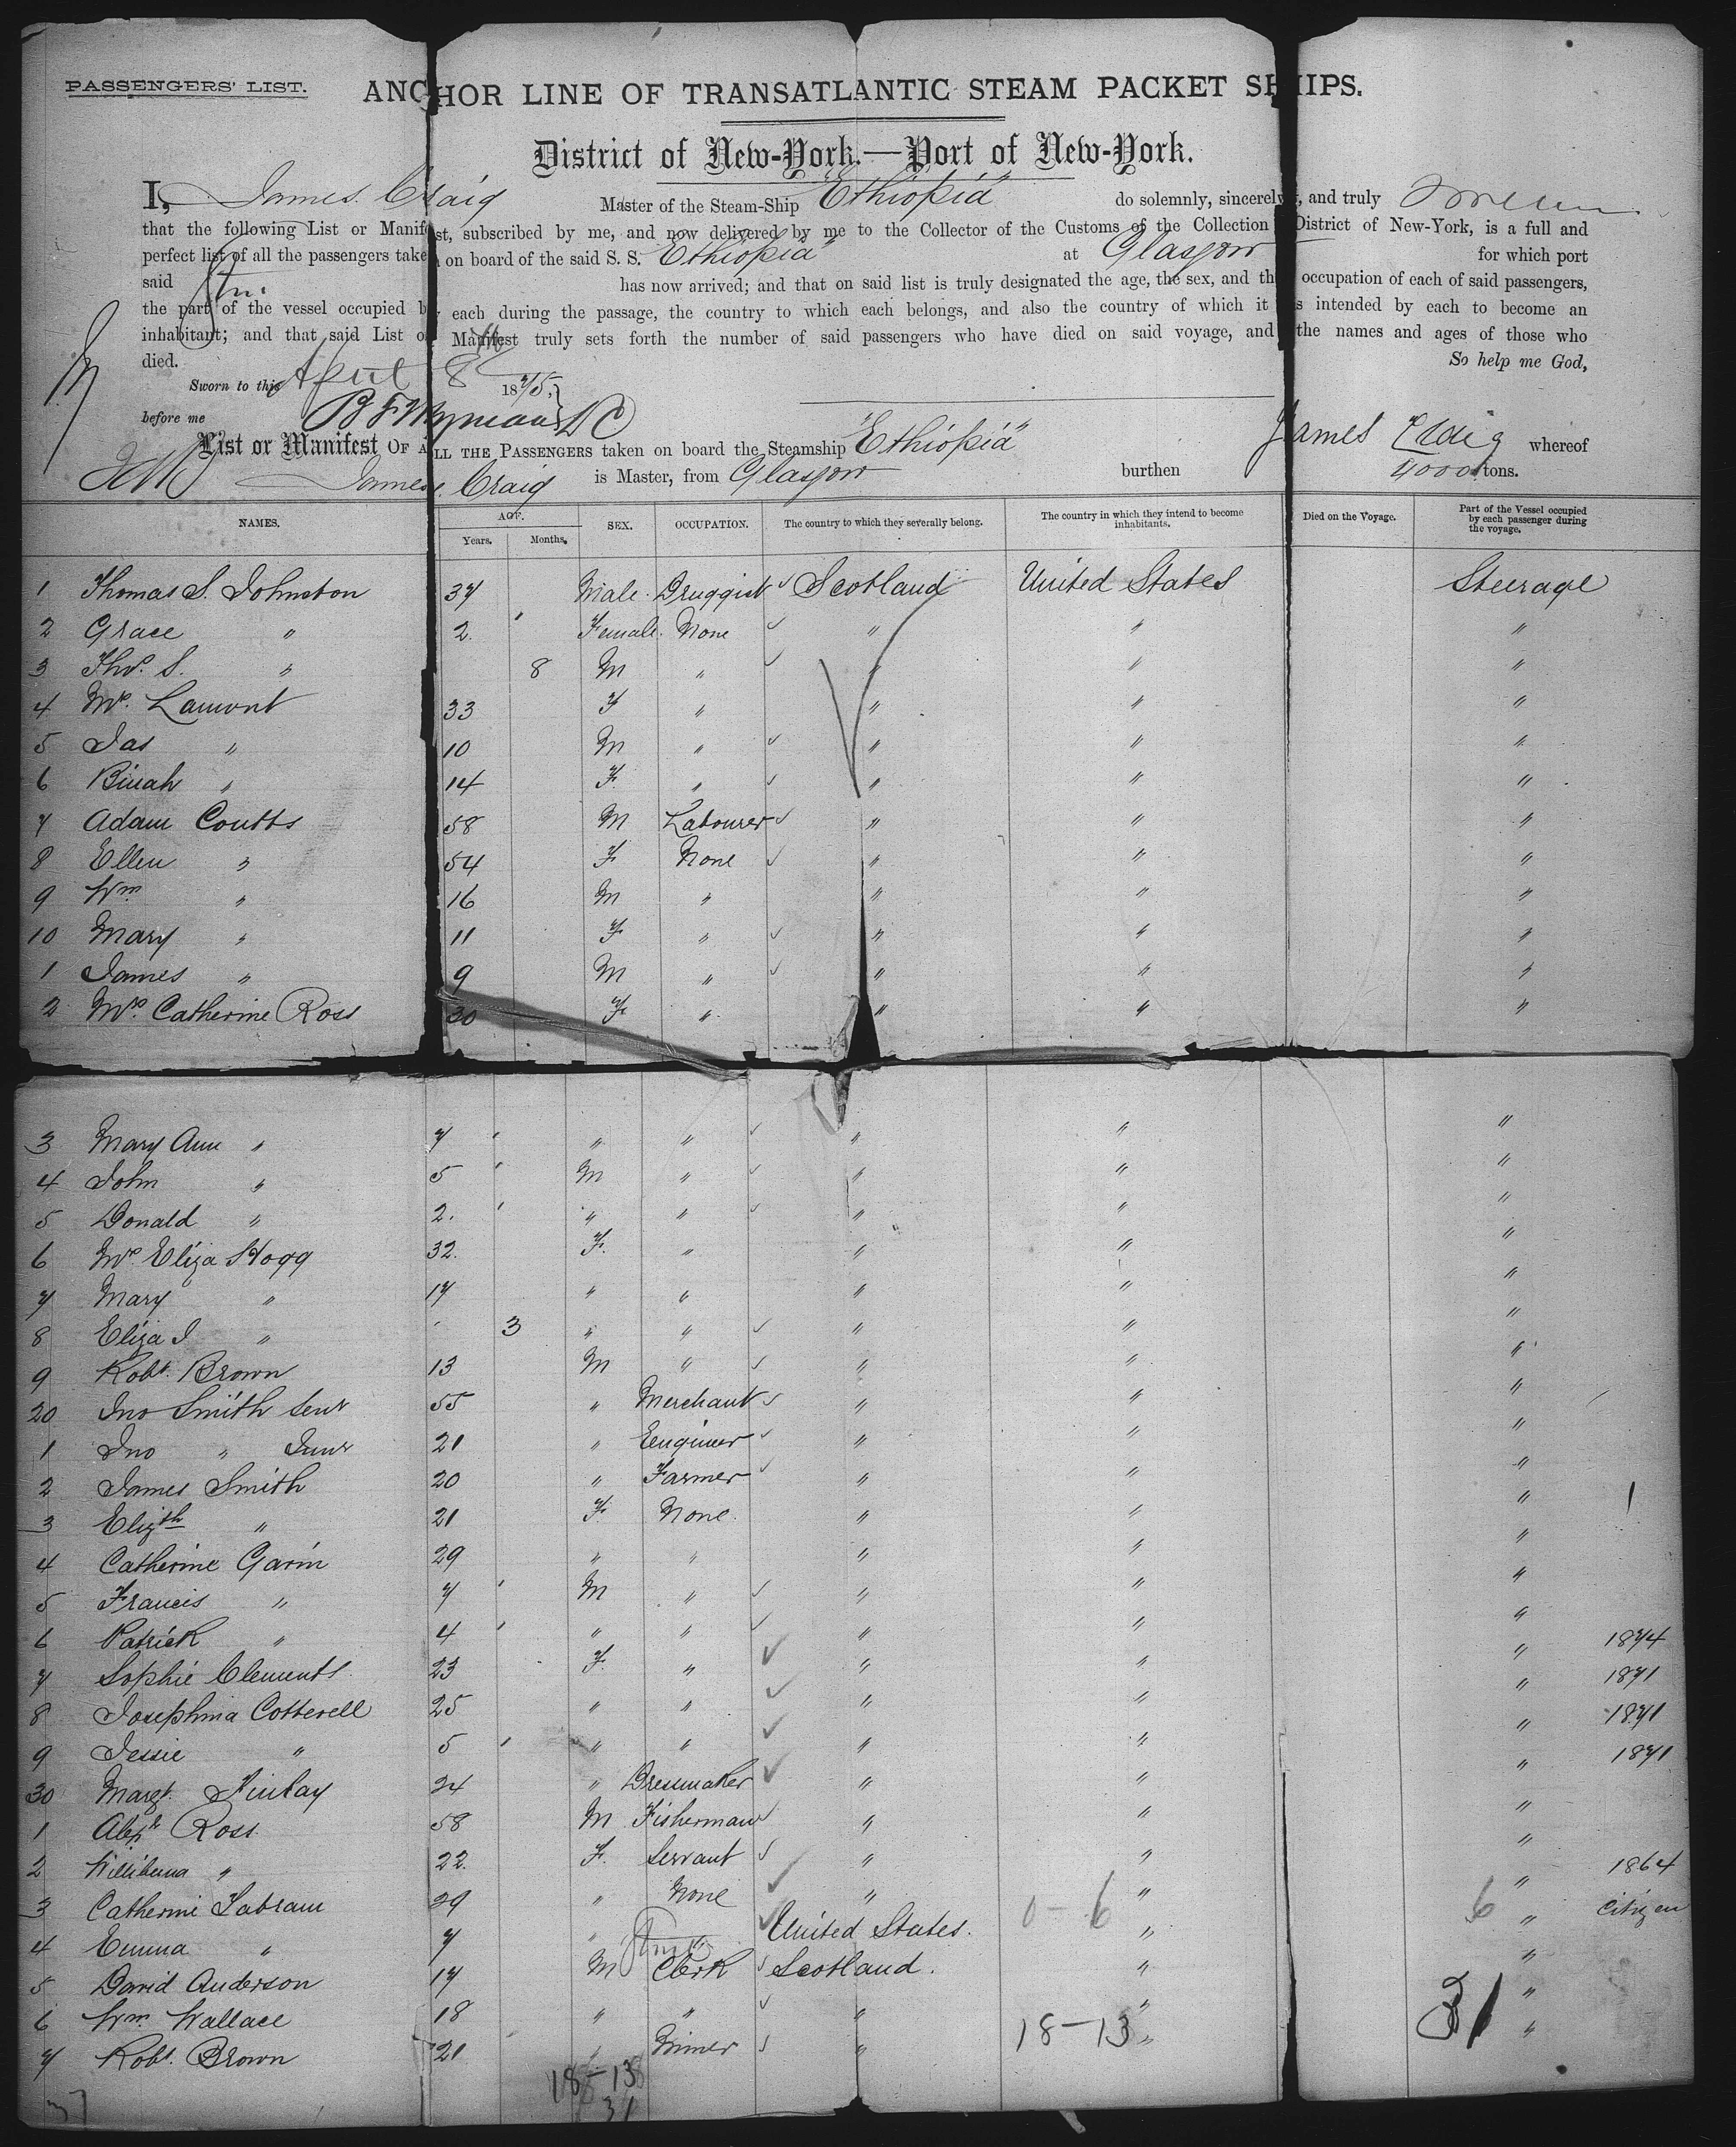 PASSENGERS' LIST.
ANCHOR LINE OF TRANSATLANTIC STEAM PACKET SHIPS.
District of New-York.—Port of New-York.
I, James Craig Master of the Steam-Ship "Ethiopia" do solemnly, sincerely, and truly
that the following List or Manifest, subscribed by me, and now delivered by me to the Collector of the Customs of the Collection District of New-York, is a full and
perfect list of all the passengers taken on board of the said S. S. "Ethiopia" at Glasgow for which port
said has now arrived; and that on said list is truly designated the age, the sex, and the occupation of each of said passengers,
the part of the vessel occupied by each during the passage, the country to which each belongs, and also the country of which it is intended by each to become an
inhabitant; and that said List or Manifest truly sets forth the number of said passengers who have died on said voyage, and the names and ages of those who
died. So help me God,
Sworn to this April 8th 1875,
before me James Craig
List or Manifest OF ALL THE PASSENGERS taken on board the Steamship "Ethiopia" whereof
James Craig is Master, from Glasgow burthen 4000 tons.
NAMES. AGE. Years. Months. SEX. OCCUPATION. The country to which they severally belong. The country in which they intend to become inhabitants. Died on the Voyage. Part of the Vessel occupied by each passenger during the voyage.
1 Thomas S. Johnston 37 Male Druggist Scotland United States Steerage
2 Grace " 2 Female None " " "
3 Thos. S. " 8 M " " " "
4 Mrs. Lamont 33 F " " " "
5 Jas " 10 M " " " "
6 Binah " 14 F. " " " "
7 Adam Coutts 58 M Labourer " " "
8 Ellen " 54 F None " " "
9 Wm " 16 M " " " "
10 Mary " 11 F " " " "
1 James " 9 M " " " "
2 Mrs. Catherine Ross 30 F. " " " "
3 Mary Ann " 7 " " " " "
4 John " 5 M " " " "
5 Donald " 2. " " " " "
6 Mrs. Eliza Hogg 32. F. " " " "
7 Mary " 17 " " " " "
8 Eliza J " 3 " " " " "
9 Robt. Brown 13 M " " " "
20 Jno Smith Senr 55 " Merchant " " "
1 Jno " Junr 21 " Engineer " " "
2 James Smith 20 " Farmer " " "
3 Elizth " 21 F. None. " " "
4 Catherine Gavin 29 " " " " "
5 Francis " 7 M " " " "
6 Patrick " 4 " " " " "
7 Sophie Clements 23 F. " " " " 1874
8 Josephina Cotterell 25 " " " " " 1871
9 Jessie " 5 " " " " " 1871
30 Margt. Finlay 24 " Dressmaker " " " 1871
1 Alexr Ross 58 M Fisherman " " "
2 Williamina " 22. F. Servant " " "
3 Catherine Tabram 29 " None " " " 1864
4 Emma " 7 " United States. " " Citizen
0-6 6
5 David Anderson 17 M Clerk Scotland. " "
6 Wm. Wallace 18 " " " " "
7 Robt. Brown 21 " Miner " " "
18-13 31
18-13
31
37